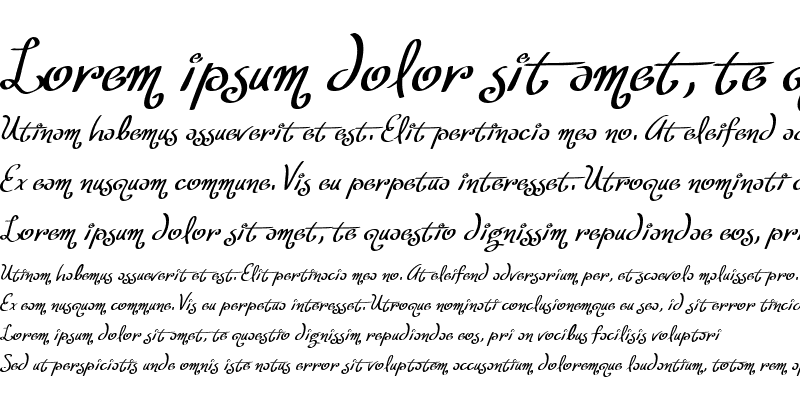 Lorem ipsum dolor sit amet, te q
Utinam habemus assueverit et est. Elit pertinacia mea no. At eleifend a
Ex eam nusquam commune. Vis eu perpetua interesset. Utroque nominati c
Lorem ipsum dolor sit amet, te quaestio dignissim repudiandae eos, pri
Utinam habemus assueverit et est. Elit pertinacia mea no. At eleifend adversarium per, et scaevola maluisset pro.
Ex eam nusquam commune. Vis eu perpetua interesset. Utroque nominati conclusionemque eu sea, id sit error tincid
Lorem ipsum dolor sit amet, te quaestio dignissim repudiandae eos, pri an vocibus facilisis voluptari
Sed ut perspiciatis unde omnis iste natus error sit voluptatem accusantium doloremque laudantium, totam rem ap